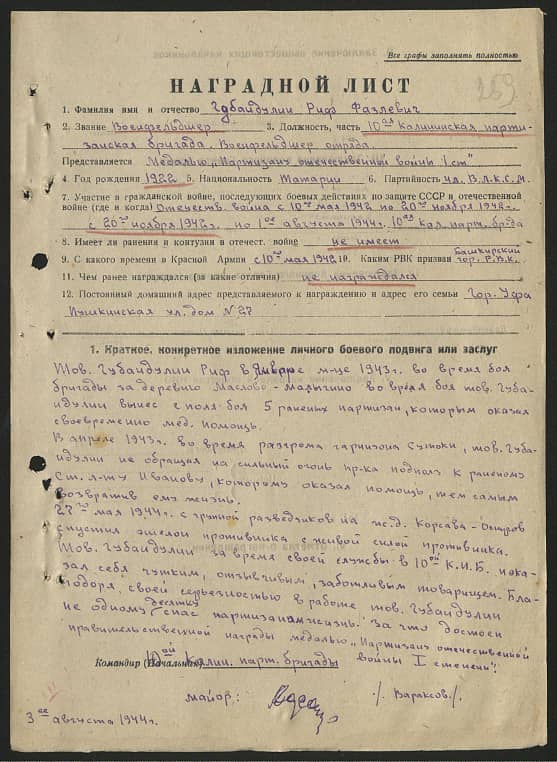 Все графы заполнять полностью
259
НАГРАДНОЙ ЛИСТ
1. Фамилия имя и отчество Губайдулин Риф Фазлевич
2. Звание Военфельдшер 3. Должность, часть 10ая Калининская парти-
занская бригада, Военфельдшер отряда.
Представляется Медалью „Партизану отечественный войны 1 ст"
4. Год рождения 1922 5. Национальность Татарин 6. Партийность чл. В.Л.К.С.М.
7. Участие в гражданской войне, последующих боевых действиях по защите СССР и отечественной
войне (где и когда) Отечеств. война с 10го мая 1942 по 20го ноября 1942г.
с 20го ноября 1942г. по 1ое августа 1944г. 10ая кал. парт. бр-да
8. Имеет ли ранения и контузии в отечест. войне не имеет
9. С какого времени в Красной Армии с 10го мая 1942 10. Каким РВК призван Башкирский гор. Р.В.К.
11. Чем ранее награждался (за какие отличия) не награждался
12. Постоянный домашний адрес представляемого к награждению и адрес его семьи Гор. Уфа
Пушкинская ул. дом N 27
1. Краткое, конкретное изложение личного боевого подвига или заслуг
Тов. Губайдулин Риф в Январе м-це 1943г. во время боя
бригады за деревню Маслово-малыгино во время боя тов. Губа-
йдулин вынес с поля боя 5 раненых партизан, которым оказал
своевременно мед. помощь.
В апреле 1943г. во время разгрома гарнизона Сутоки, тов. Губа-
йдулин не обращая на сильный огонь пр-ка подполз к раненому
Ст. л-ту Иванову, которому оказал помощь, тем самым
возвратив ему жизнь.
27го мая 1944г. с группой разведчиков на ж.д. Корсава-Остров
спустил эшелон противника с живой силой противника.
Тов. Губайдулин за время своей службы в 10ой К.П.Б. пока-
зал себя чутким, отзывчивым, заботливым товарищем. Бла-
годоря, своей серьезностью в работе тов. Губайдулин
не одному десятку спас партизанам жизнь. За что достоен
правительственной награды медалью „Партизан отечественной
войны I степени".
Командир (Начальник) 10ой Калин. парт. бригады
майор: /. Вараксов./.
3ее августа 1944г.